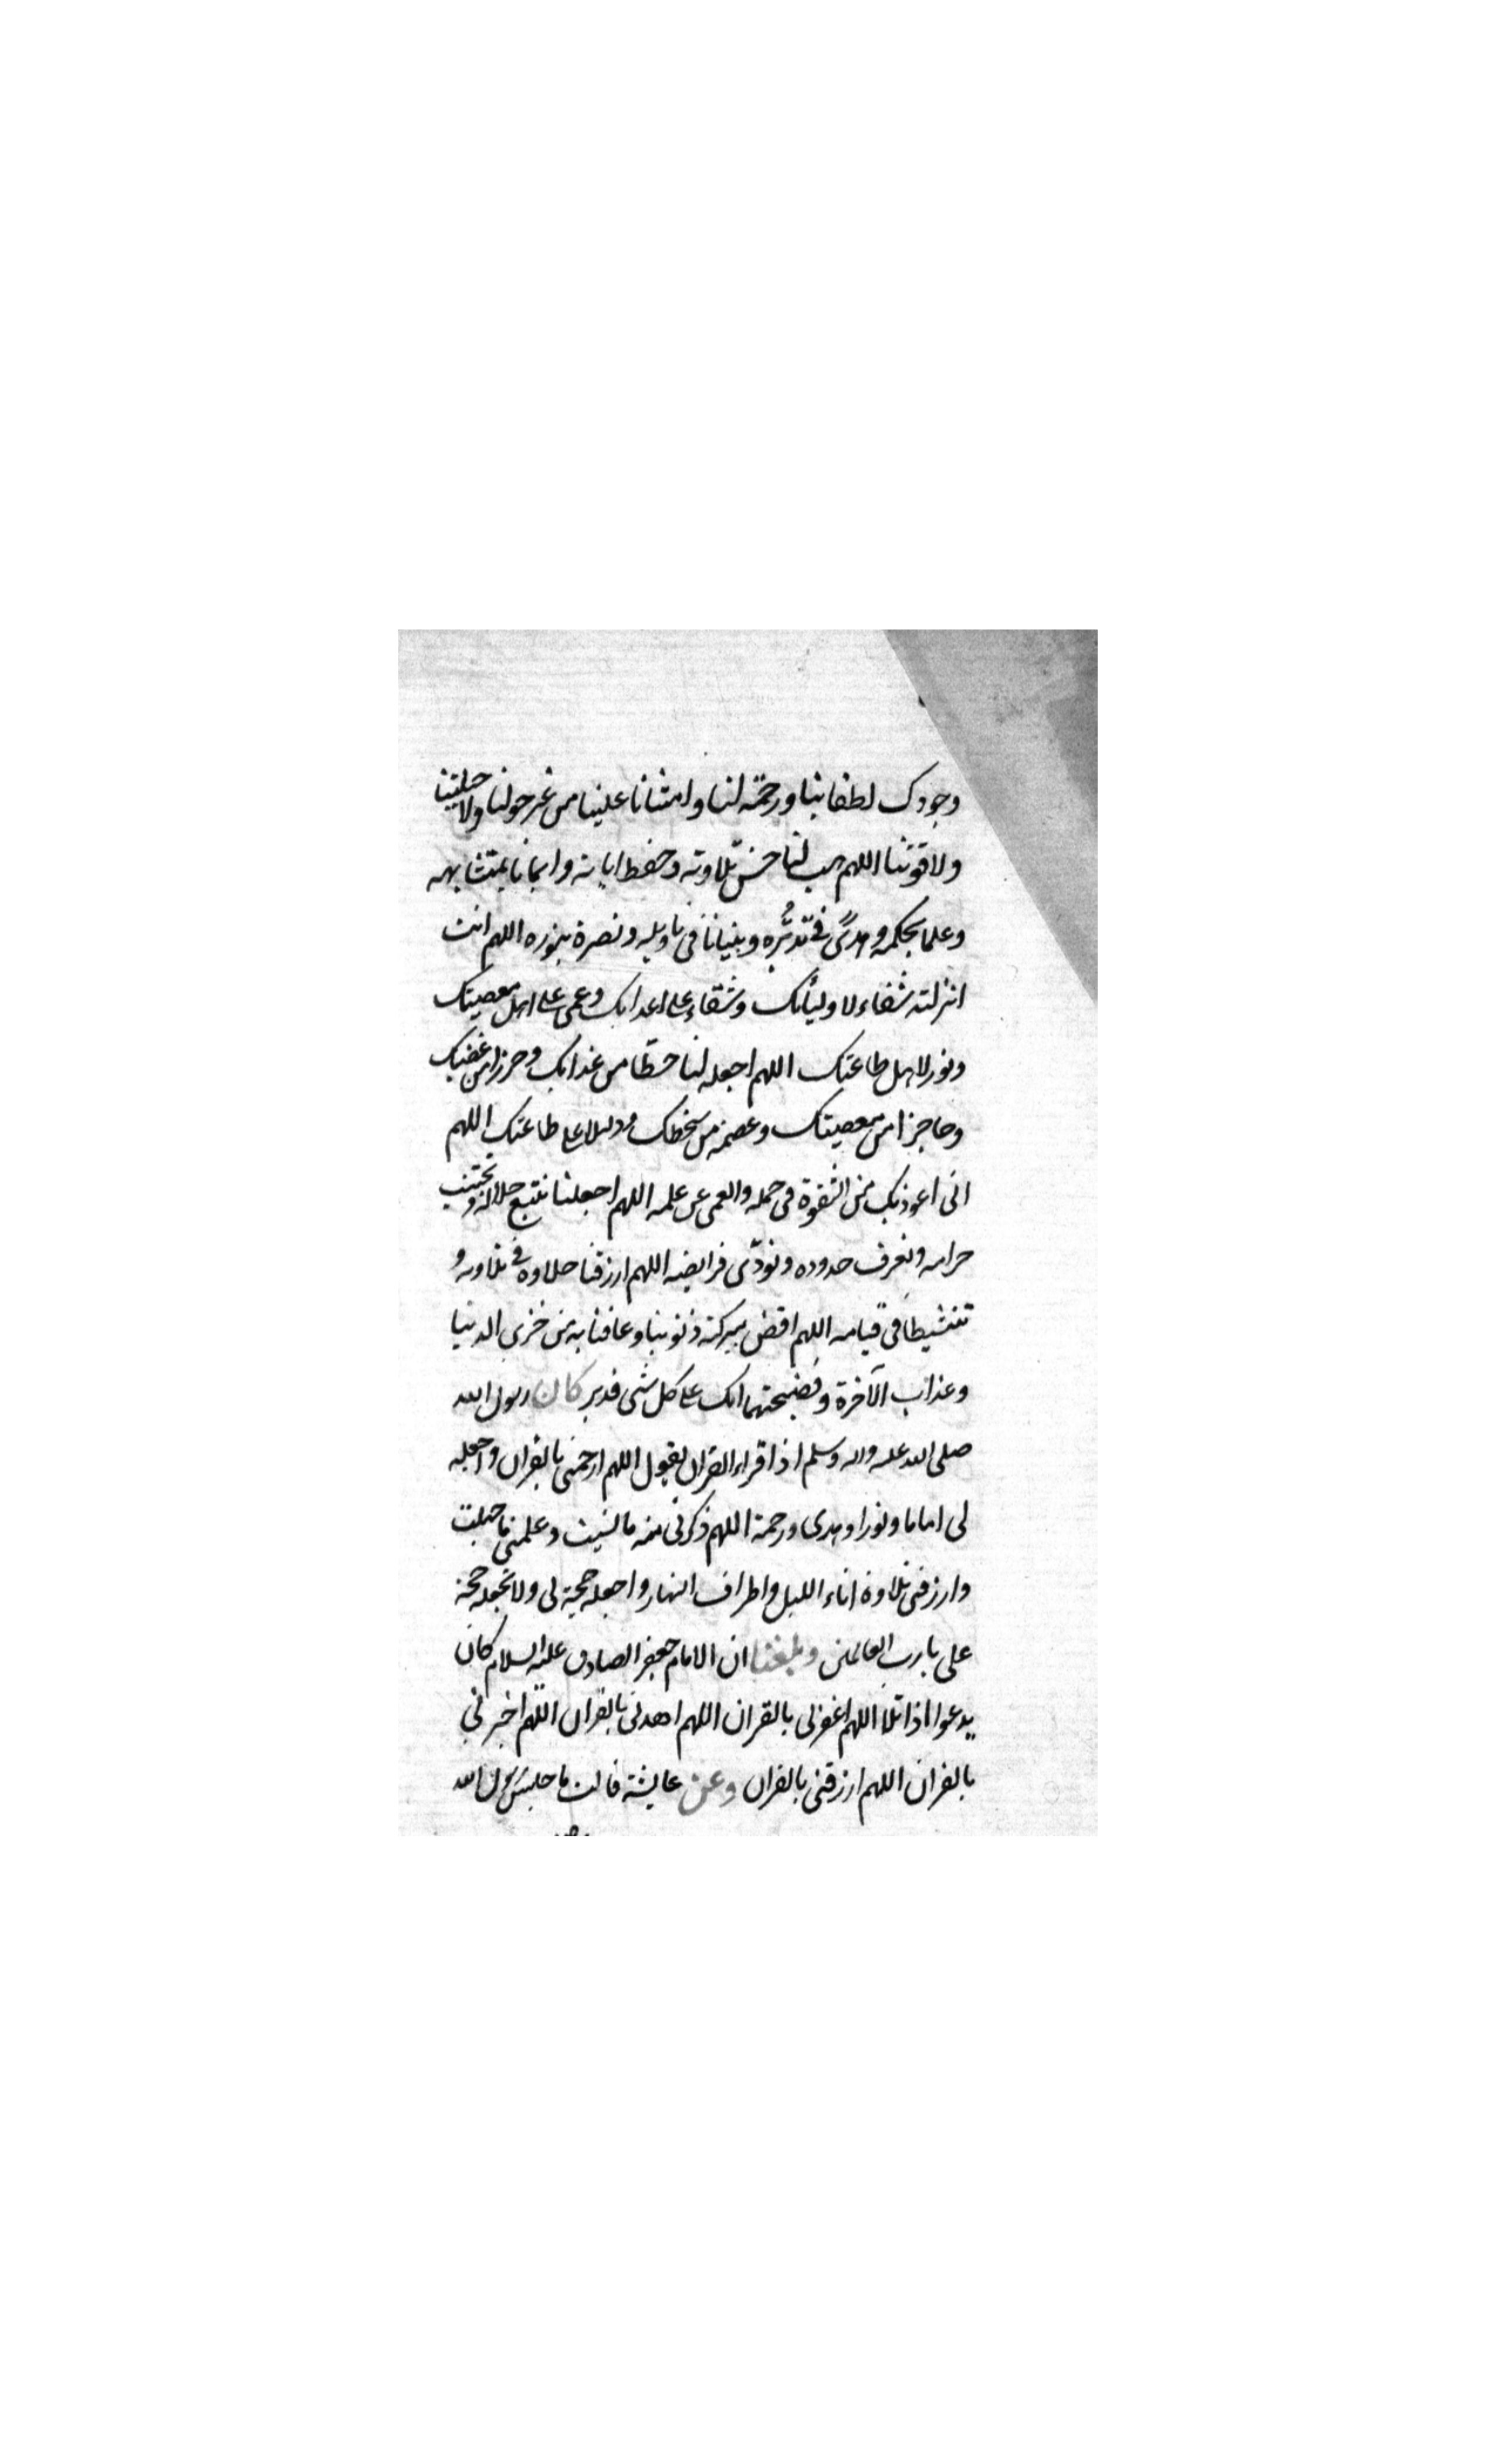 وجودك لطفا بنا ورحمة لنا وامتنانا علينا من غير حولنا ولا حيلتنا
ولا قوتنا اللهم هب لنا حسن تلاوته وحفظ اياته وايمانا بمتشابهه
وعلما بحكمه وهدًى في تدبُّره وبنيانا في تاويله ونصرة بنوره اللهم انت
انزلته شفاء لاوليائك وشقاء على اعدائك وعمى على اهل معصيتك
ونور لاهل طاعتك اللهم اجعله لنا من عذابك وحرزا من غضبك
وحاجزا من معصيتك وعصمة من سخطك ودليلا على طاعتك اللهم
انى اعوذ بك من الشقوة فى حمله والعمى عن علمه اللهم اجعلنا نتبع حلاله ونجتنب
حرامه ونعرف حدوده ونودّى فرايضه اللهم ارزقنا حلاوة في تلاوته و
تنشيطا فى قيامه اللهم اقض ببركته ذنوبنا وعافنا به من خزى الدنيا
وعذاب الآخرة وفضيحتهما انك على كل شى قدير كان رسول الله
صلى الله عليه واله وسلم اذا قراء القران يقول اللهم ارحمنى بالقران واجعله
لى اماما ونورا وهدى ورحمة اللهم ذكرنى منه ما نسيت وعلمنى ما جهلت
وارزقنى تلاوة اناء الليل واطراف النهار واجعله حجة لى ولا تجعله حجة
على يا رب العالمين وبلغنا ان الامام جعفر الصادق عليه السلام كان
يدعوا اذا تلا اللهم اغفر لى بالقران اللهم اهدنى بالقران اللهم اخبرني
بالقران اللهم ارزقنى بالقران وعن عايشة قالت ما جلس رسول الله